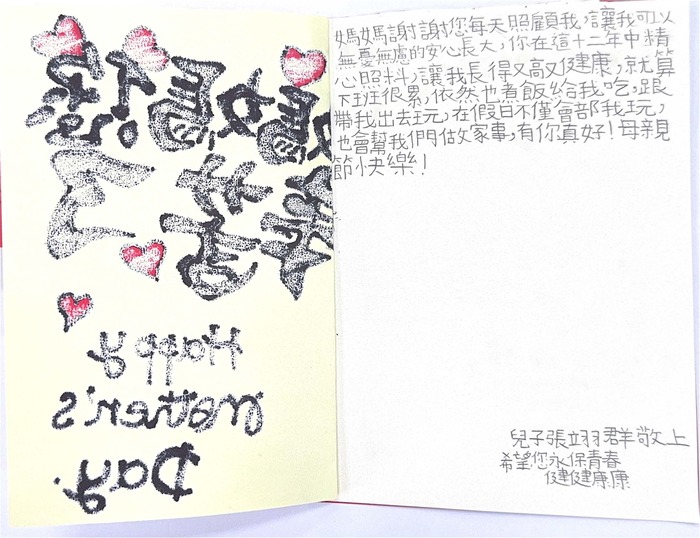 媽媽您
辛苦了
Happy
Mother's
Day.
媽媽謝謝您每天照顧我,讓我可以
無憂無慮的安心長大,你在這十二年中精
心照料,讓我長得又高又健康,就算
下班很累,依然也煮飯給我吃,跟
帶我出去玩,在假日不僅會部我玩,
也會幫我們做家事,有你真好!母親
節快樂!
兒子張翊群敬上
希望您永保青春
健健康康